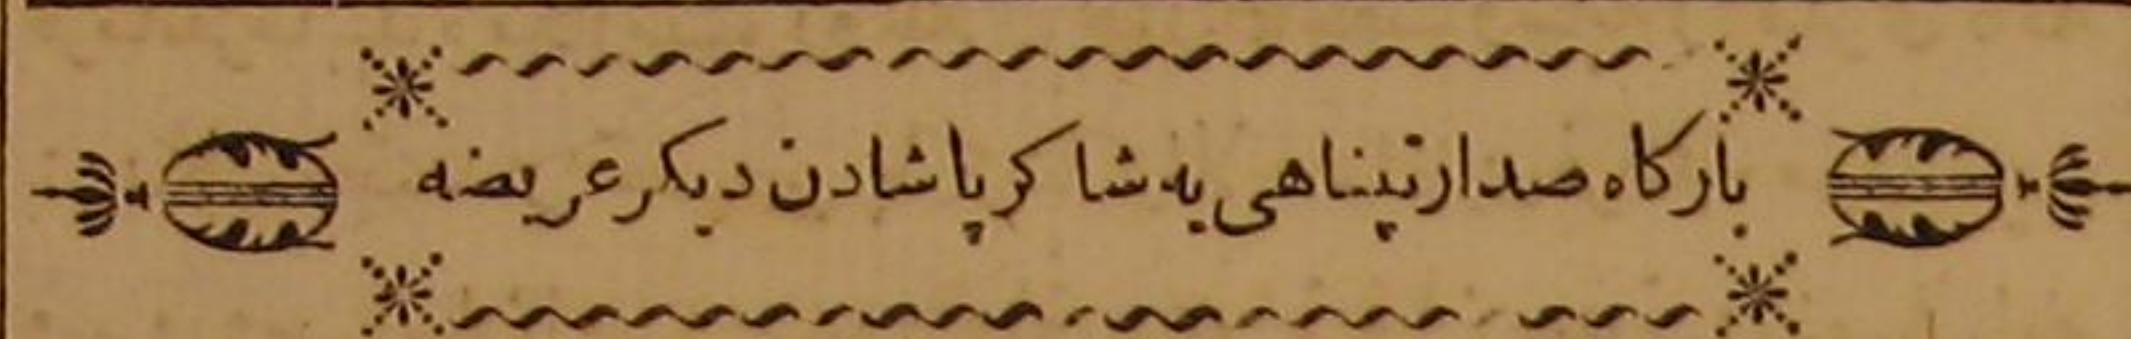 بارکاه صدارتپناهی یه شاکر پاشادن دیکر عریضه